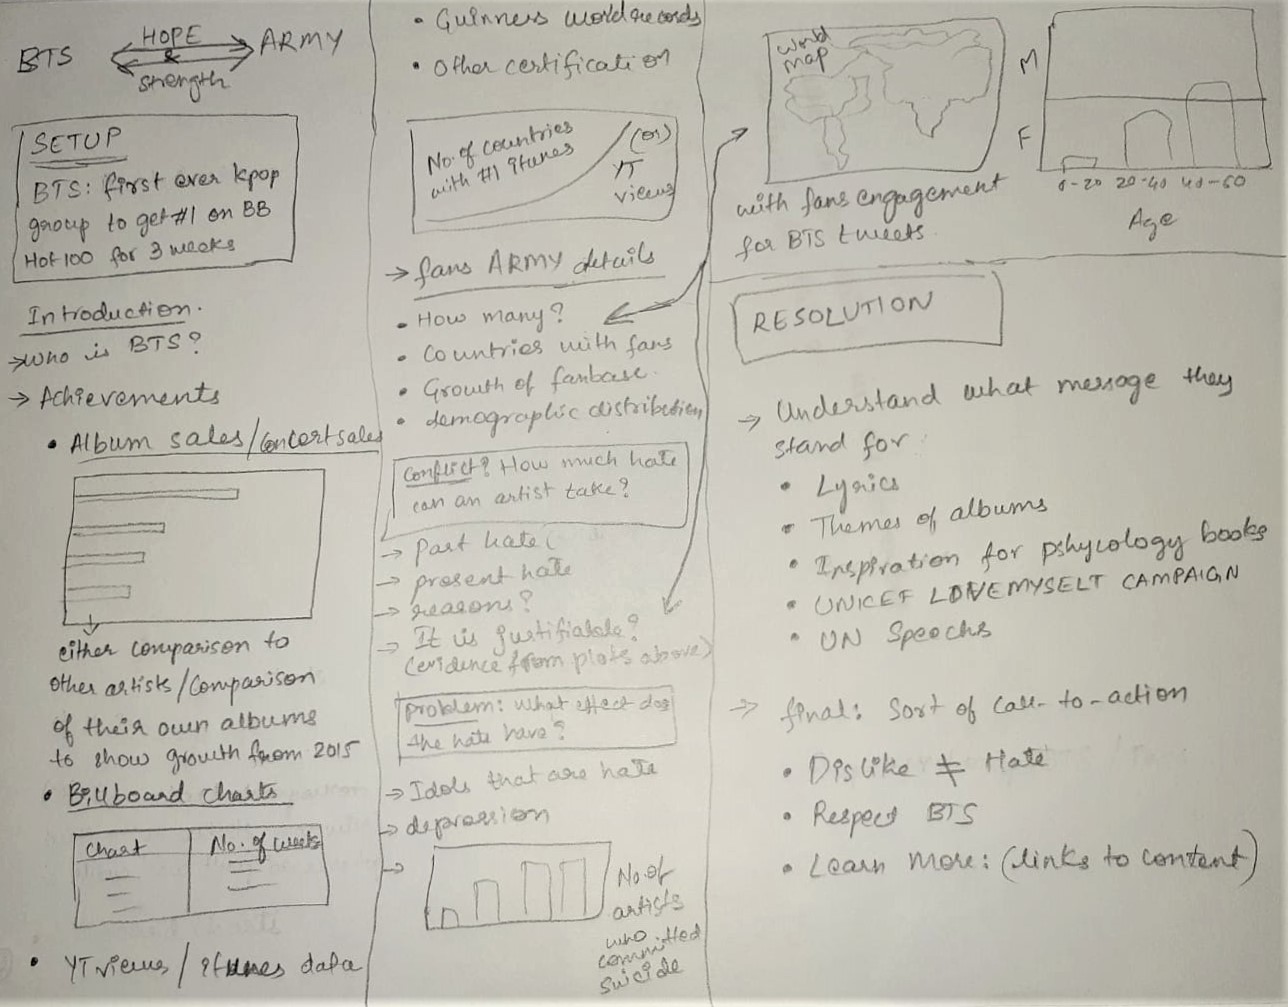 BTS
HOPE
&
strength
ARMY
SETUP
BTS: first ever kpop
group to get #1 on BB
Hot 100 for 3 weeks
Introduction.
→ Who is BTS?
→ Achievements
• Album sales/Concert sales
either comparison to
other artists/Comparison
of their own albums
to show growth from 2015
• Billboard charts
Chart
No. of weeks
• YT views / itunes data
• Guinness world records
• Other certification
No. of countries
with #1 itunes
(or)
YT
views
→ fans ARMY details
• How many?
• Countries with fans
• Growth of fanbase.
• demographic distribution
Conflict? How much hate
can an artist take?
→ Past hate
→ present hate
→ reasons?
→ It is justifiable?
(evidence from plots above)
problem: What effect does
the hate have?
→ Idols that are hate
→ depression
→
No. of
artists
who
committed
suicide
World
map
with fans engagement
for BTS tweets.
M
F
0-20 20-40 40-60
Age
RESOLUTION
→ Understand what message they
stand for:
• Lyrics
• Themes of albums
• Inspiration for pshycology books
• UNICEF LOVEMYSELT CAMPAIGN
• UN Speechs
→ final: Sort of Call-to-action
• Dislike ≠ Hate
• Respect BTS
• Learn More: (links to content)